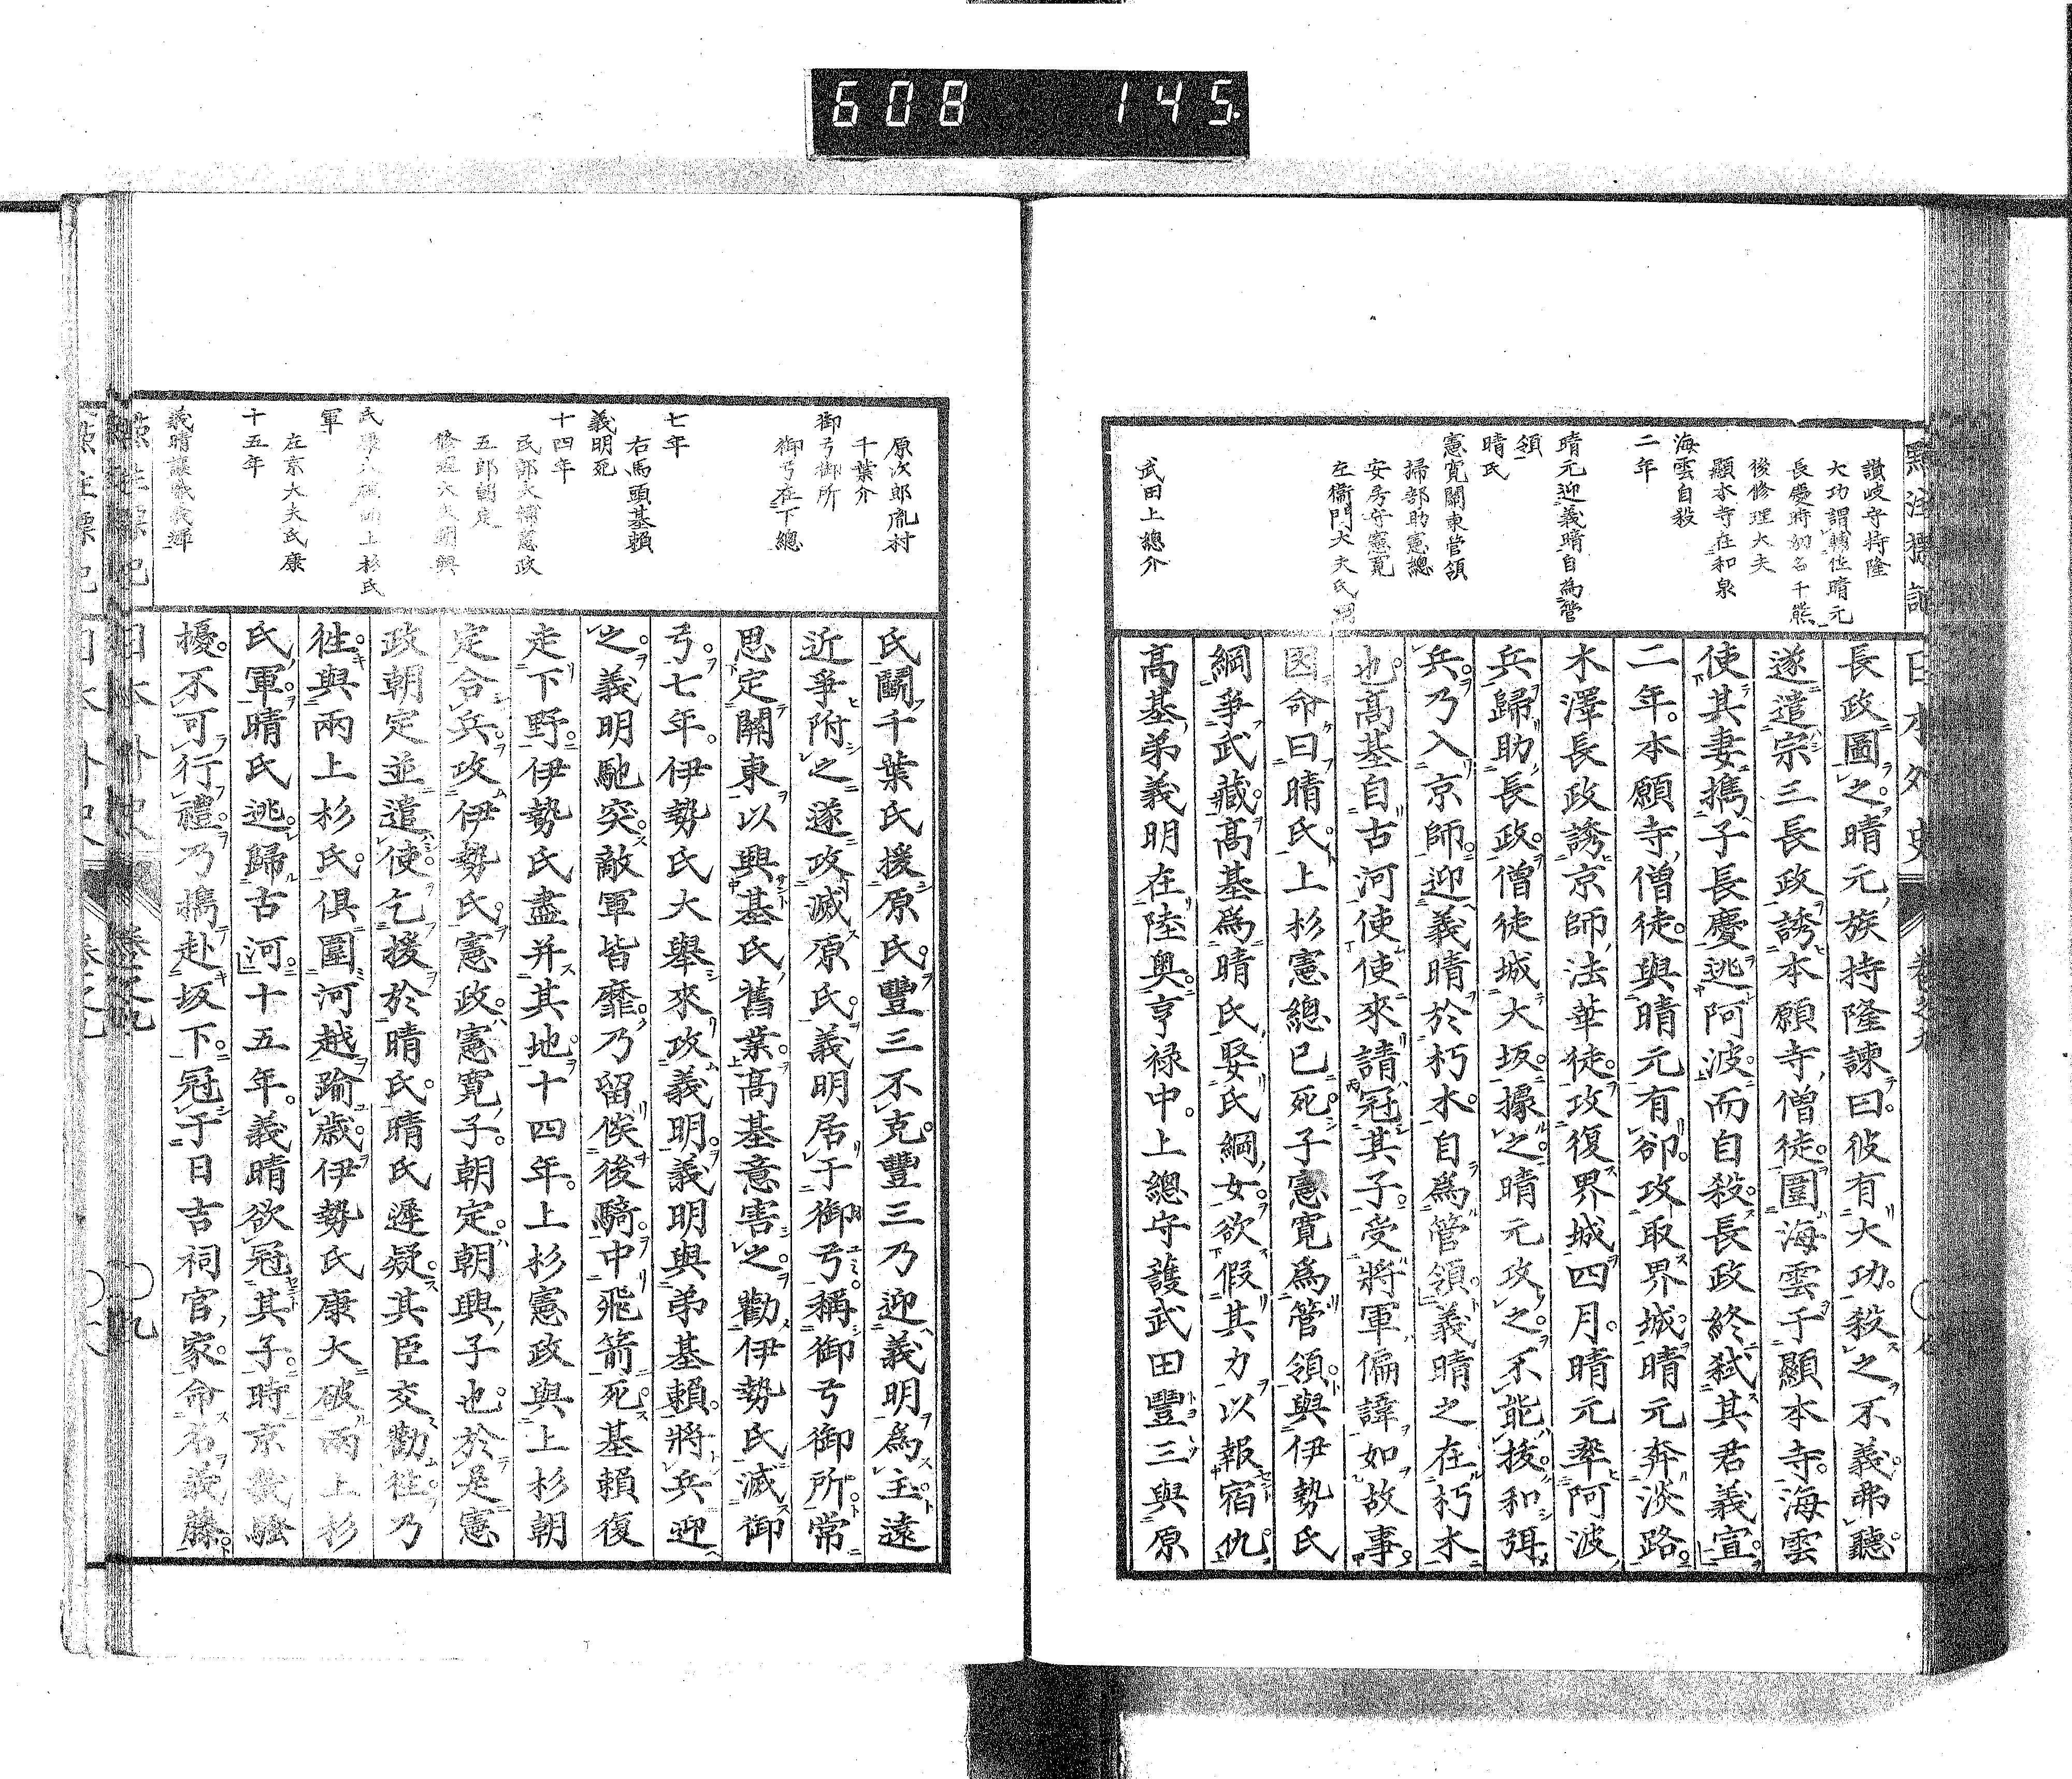 608 145.
讃岐守持隆
大功謂轉仕晴元
長慶時幼名千熊
後修理大夫
顯本寺在和泉
海雲自殺
二年
晴元迎義晴自為管
領
晴氏
憲寛關東管領
掃部助憲總
安房守憲寛
左衞門大夫氏綱
武田上總介
日本外史
長政圖之晴元族持隆諫曰彼有大功殺之不義弗聽
遂遣宗三長政誘本願寺僧徒圍海雲于顯本寺海雲
使其妻擕子長慶逃阿波而自殺長政終弑其君義宣
二年本願寺僧徒與晴元有郤攻取界城晴元奔淡路
木澤長政誘京師法華徒攻復界城四月晴元率阿波
兵歸助長政僧徒城大坂據之晴元攻之不能拔和弭
兵乃入京師迎義晴於朽木自爲管領義晴之在朽木
也高基自古河使使來請冠其子受將軍偏諱如故事
因命曰晴氏上杉憲總已死子憲寛爲管領與伊勢氏
綱爭武藏高基爲晴氏娶氏綱女欲假其力以報宿仇
高基弟義明在陸奧亨禄中上總守護武田豐三與原
原次郎胤村
千葉介
御弓御所
御弓在下總
七年
右馬頭基賴
義明死
十四年
民部大輔憲政
五郎朝定
修理大夫朝興
氏康大破兩上杉氏
軍
左京大夫氏康
十五年
義晴讓職義輝
氏鬭千葉氏援原氏豐三不克豐三乃迎義明爲主遠
近爭附之遂攻滅原氏義明居于御弓稱御弓御所常
思定關東以興基氏舊業高基意害之勸伊勢氏滅御
弓七年伊勢氏大舉來攻義明義明與弟基賴將兵迎
之義明馳突敵軍皆靡乃留俟後騎中飛箭死基賴復
走下野伊勢氏盡并其地十四年上杉憲政與上杉朝
定合兵攻伊勢氏憲政憲寛子朝定朝興子也於是憲
政朝定並遣使乞援於晴氏晴氏遲疑其臣交勸徃乃
徃與兩上杉氏俱圍河越踰歳伊勢氏康大破兩上杉
氏軍晴氏逃歸古河十五年義晴欲冠其子時京畿騷
擾不可行禮乃擕赴坂下冠于日吉祠官家命名義藤